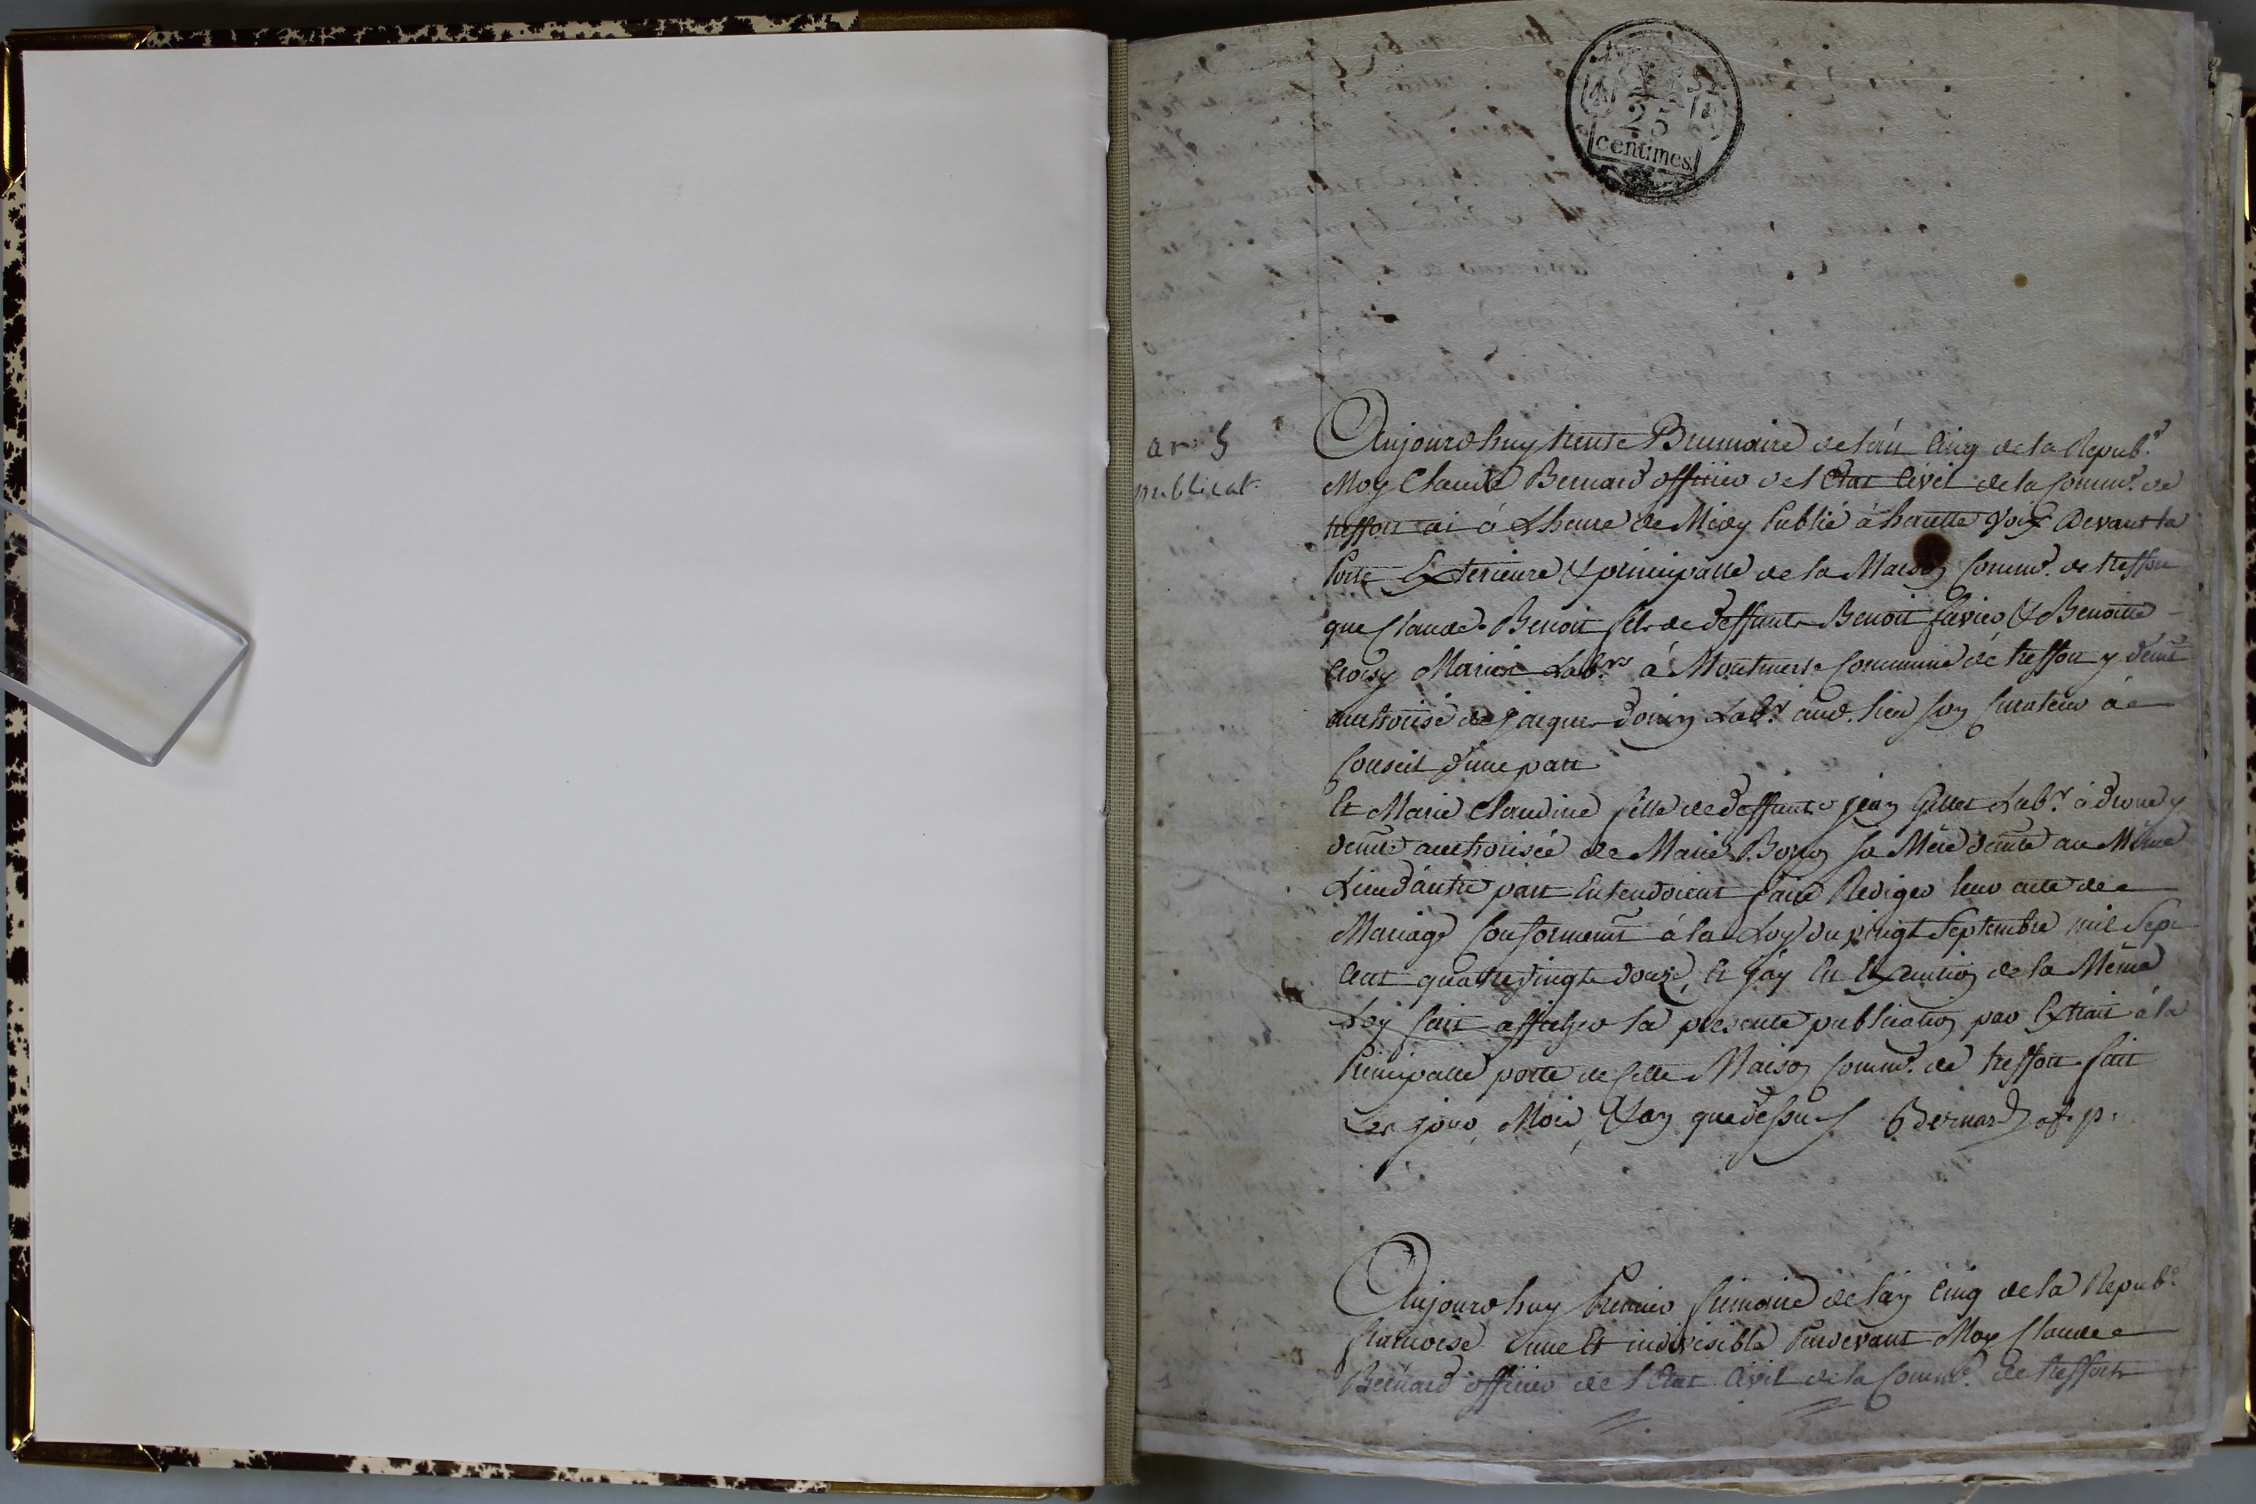 25
centimes
an 5
publicat
Aujourdhuy trente Brumaire de l'an Cinq de la Repub.e
Moy Claude Bernard officier de l'Etat Civil de la Commu.e de
treffort ai à L'heure de Midy Publié à hautte Voix Devant la
Porte Exterieure & principalle de la Maison Commu.e de treffort
que Claude Benoit fils de deffunts Benoit & Benoitte
Lab.rs à Commune de treffort y demt
authorisé de jacques Lab.r aud. lieu son Curateur à
Conseil d'une part
Et Marie Claudine fille de deffunt jean Gillet Lab.r à y
demte authorisée de Marie sa Mere demte au Même
Lieu d'autre part Entendoient faire Rediger leur acte de
Mariage Conformemt à la Loy du vingt Septembre mil Sept
Cent quatre vingt douze, Et j'ay En Execution de la Même
Loy fait afficher la presente publication par Extrait à la
Principalle porte de Cette Maison Commu.e de treffort fait
Les jour, Mois, & an que dessus Bernard of. p.
Aujourdhuy Premier frimaire de l'an Cinq de la Repub.e
francoise une Et indivisible Pardevant Moy Claude
Bernard officier de l'Etat Civil de la Commu.e de treffort
1